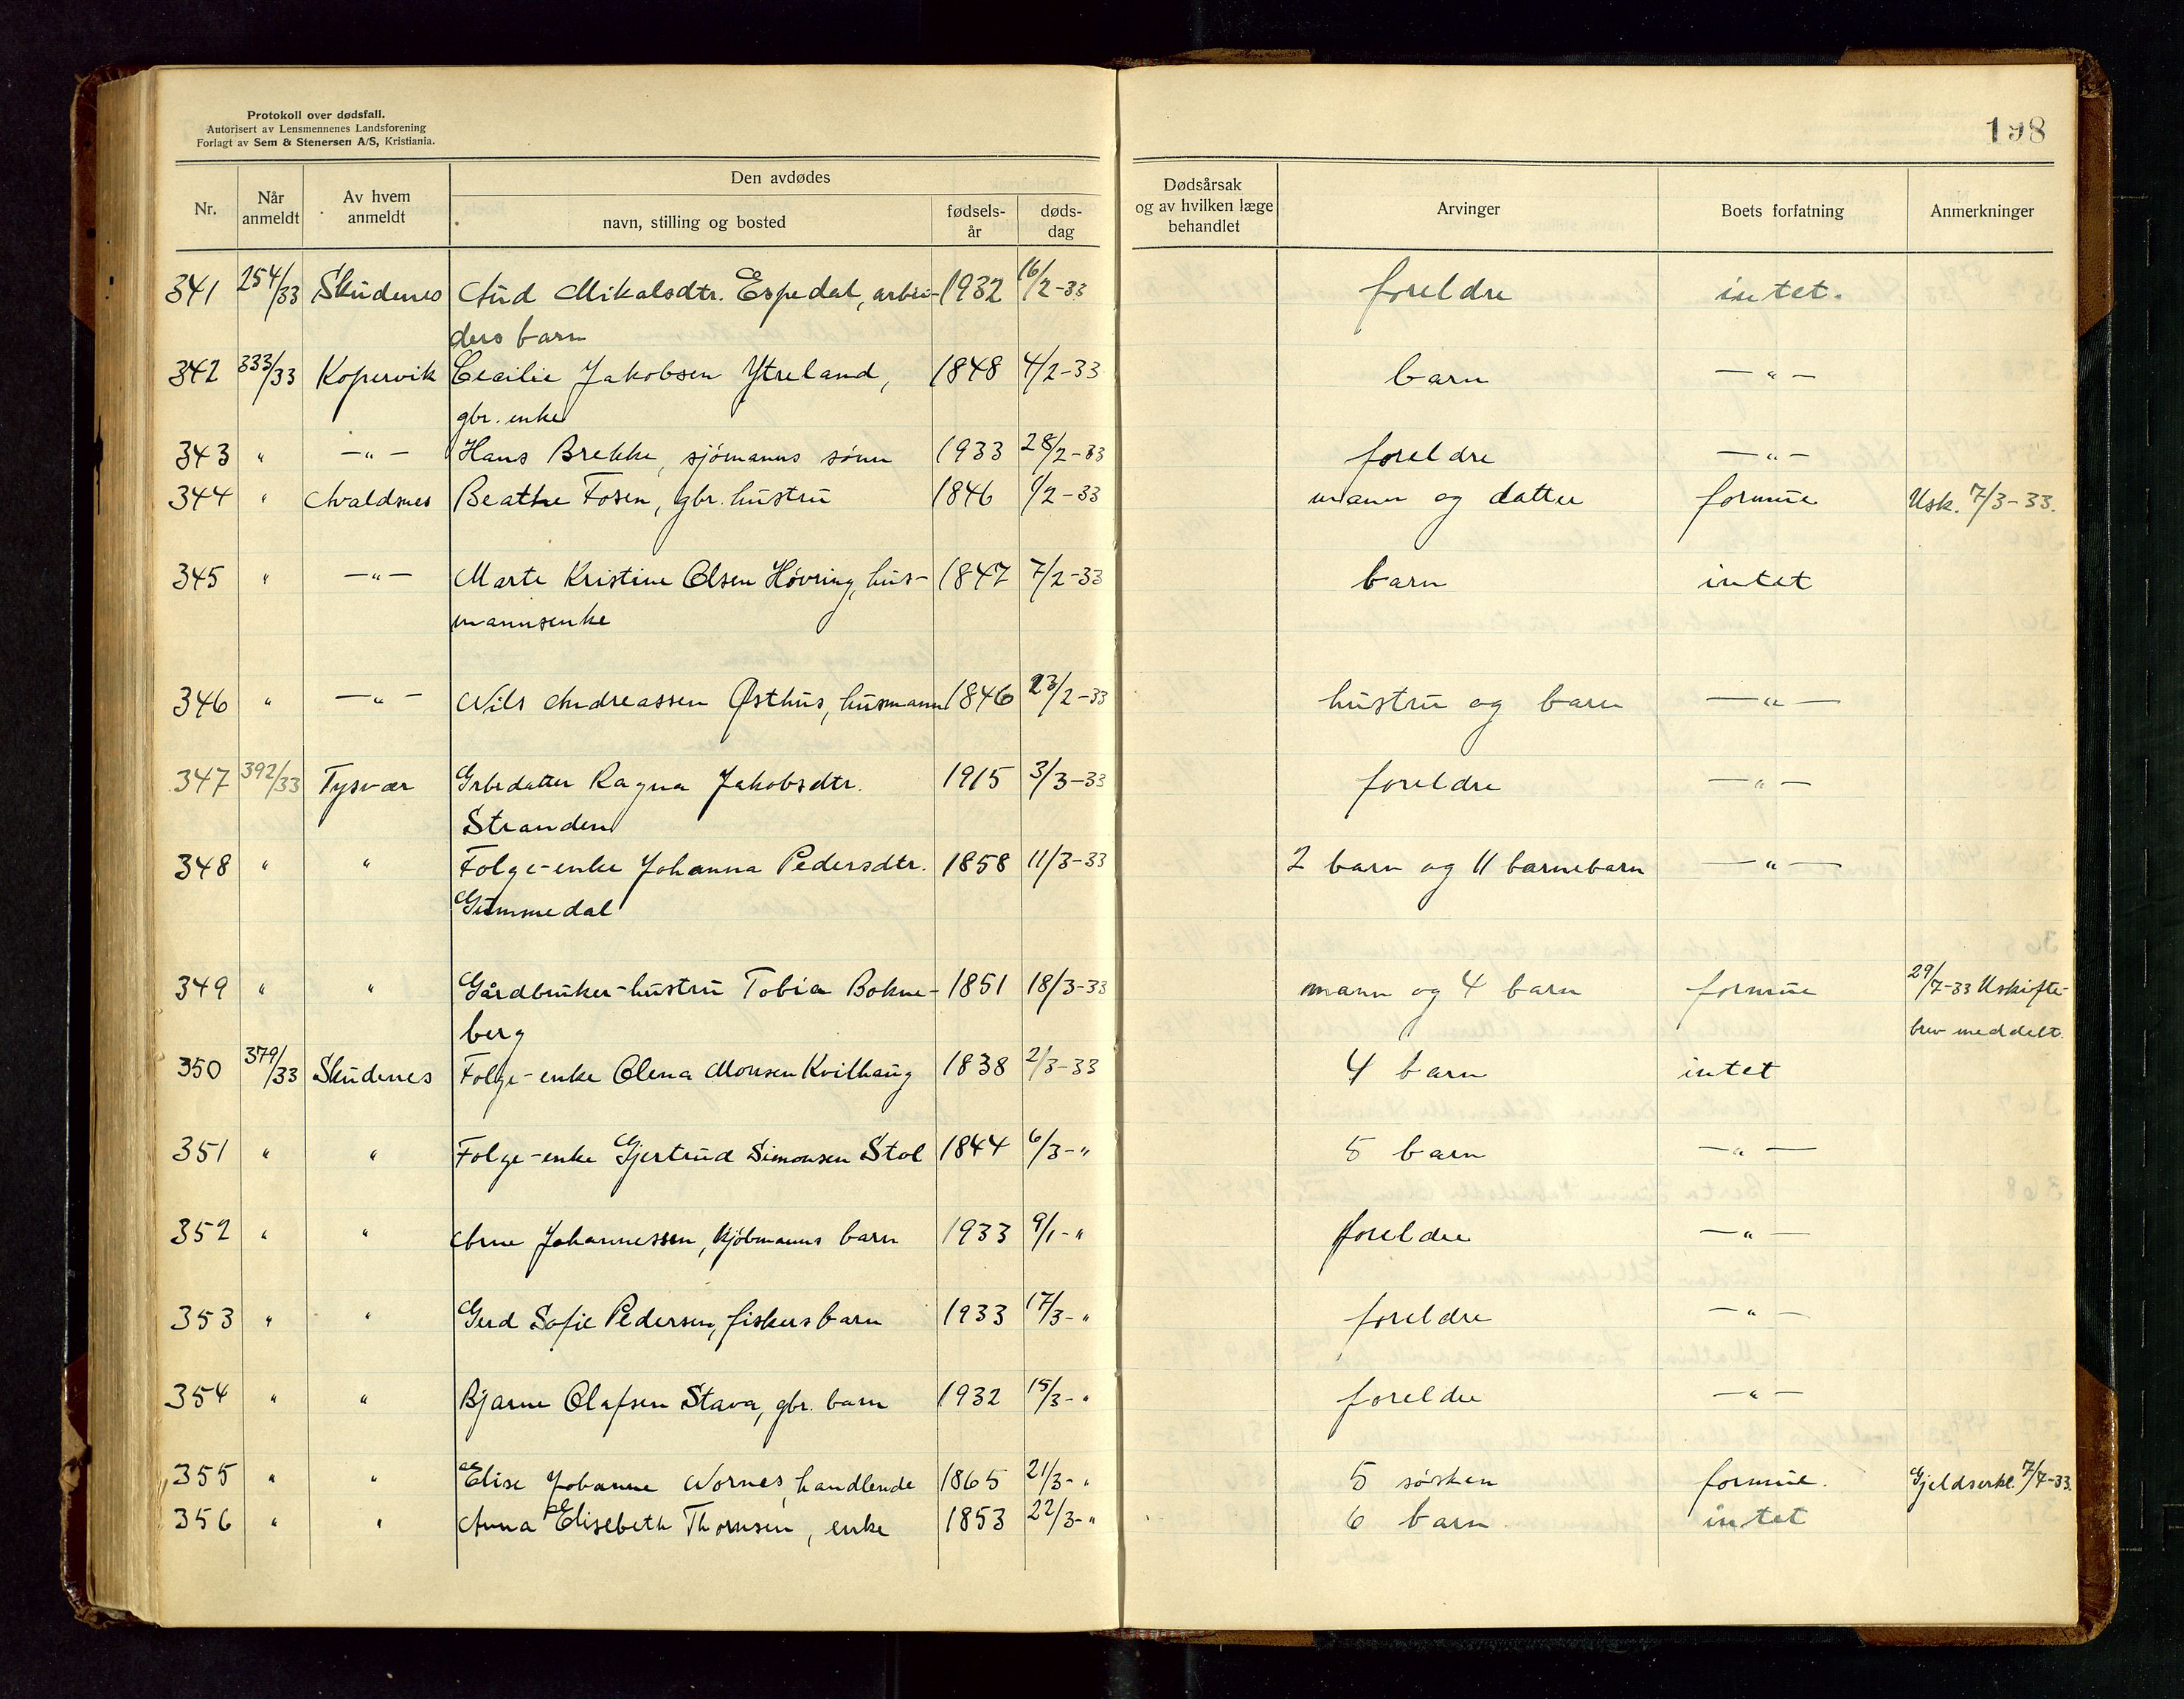 Protokoll over dødsfall.
Autorisert av Lensmennenes Landsforening
Forlagt av Sem & Stenersen A/S, Kristiania.
198
Nr. Når anmeldt Av hvem anmeldt Den avdødes navn, stilling og bosted fødsels-år døds-dag Dødsårsak og av hvilken læge behandlet Arvinger Boets forfatning Anmerkninger
341 254/33 Skudenes Aud Mikalsdtr. Espedal, arbei- 1932 16/2-33 foreldre intet.
ders barn
342 333/33 Kopervik Cecilie Jakobsen Ytreland, 1848 4/2-33 barn —"—
gbr. enke
343 " —"— Hans Brekke, sjømanns sønn 1933 28/2-33 foreldre —"—
344 " Avaldsnes Beathe Fosen, gbr. hustru 1846 1/2-33 mann og datter formue Usk. 7/3-33.
345 " —"— Marte Kristine Olsen Høvring, hus- 1847 7/2-33 barn intet
mannsenke
346 " —"— Nils Andreassen Østhus, husmann 1846 23/2-33 hustru og barn —"—
347 392/33 Tysvær Grbrdatter Ragna Jakobsdtr. 1915 3/3-33 foreldre —"—
Stranden
348 " " Folge-enke Johanna Pedersdtr. 1858 11/3-33 2 barn og 11 barnebarn —"—
Gummedal
349 " " Gårdbruker-hustru Tobia Bokne- 1851 18/3-33 mann og 4 barn formue 29/7-33 Uskifte-
berg brev meddelt.
350 379/33 Skudenes Folge-enke Olena Monsen Kvilhaug 1838 2/3-33 4 barn intet
351 " " Folge-enke Gjertrud Simonsen Stol 1844 6/3-" 5 barn —"—
352 " " Arne Johannessen, kjøbmanns barn 1933 9/1-" foreldre —"—
353 " " Gerd Sofie Pedersen, fiskers barn 1933 17/3-" foreldre —"—
354 " " Bjarne Olafsen Stava, gbr. barn 1932 15/3-" foreldre —"—
355 " " Elise Johanne Nornes, handlende 1865 21/3-" 5 søsken formue. Gjeldserkl. 7/7-33.
356 " " Anna Elisebeth Thomsen, enke 1853 22/3-" 6 barn intet